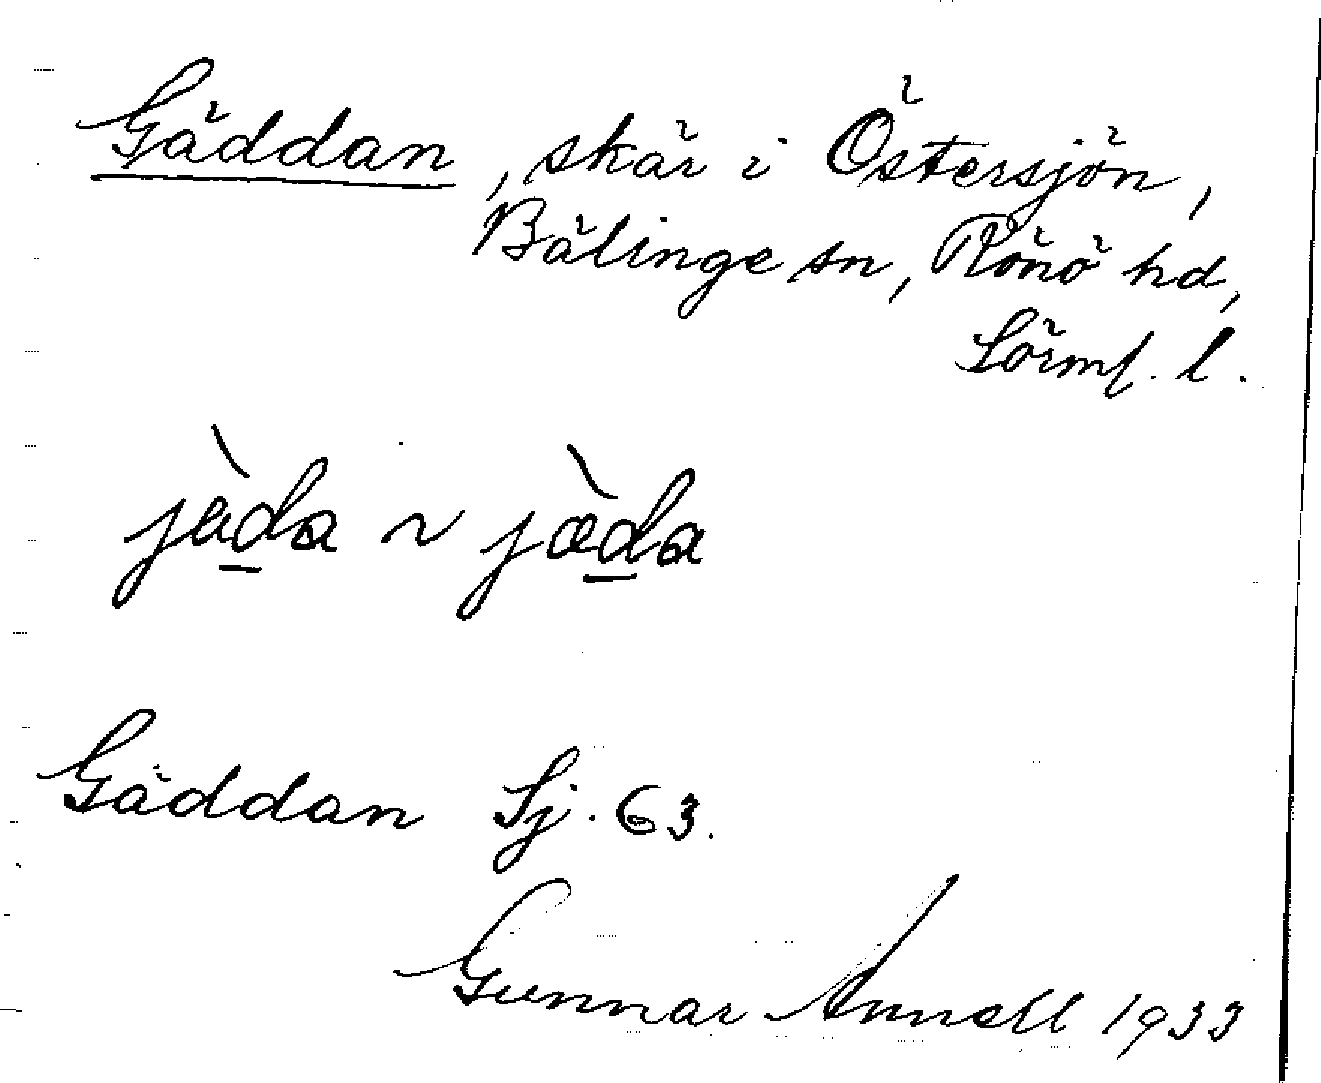 Gäddan, skär i Östersjön,
Bälinge sn, Rönö hd,
Sörml. l.
jὰd̲a ~ jæ̀d̲a
Gäddan Sj. 63.
Gunnar Annell 1933